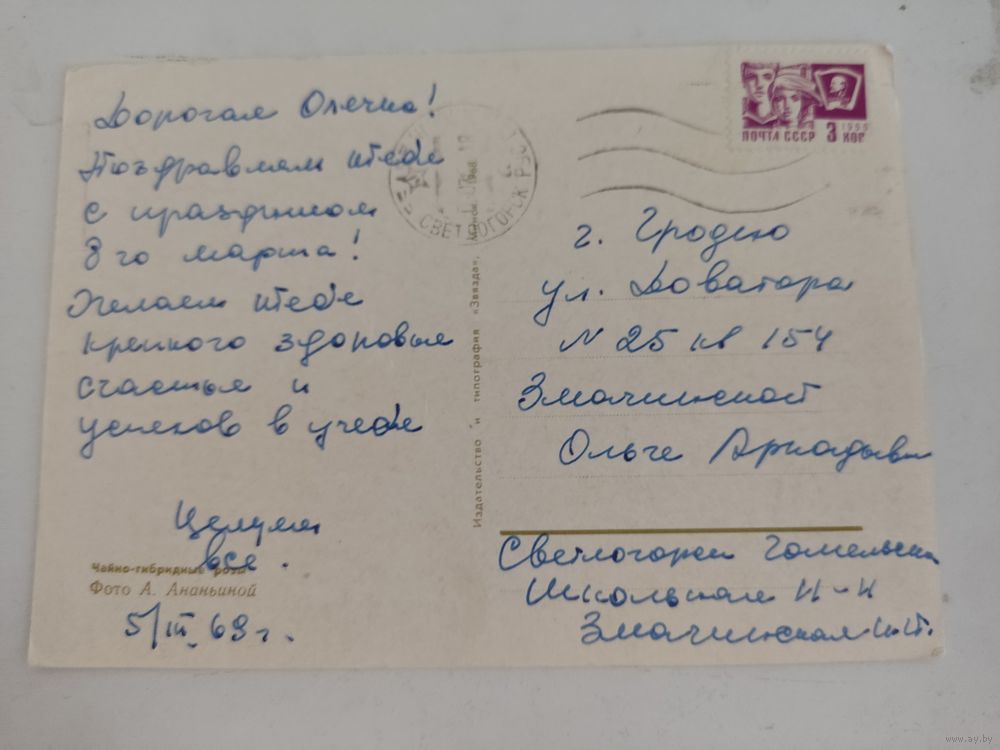 Дорогая Олечка!
Поздравляем тебя
с праздником
8го марта!
Желаем тебе
крепкого здоровья
счастья и
успехов в учебе
Целуем
все.
Чайно-гибридные розы
Фото А. Ананьиной
5/III 69 г.
Издательство и типография «Звезда», Минск 1968.
СВЕТЛОГОРСК
ПОЧТА СССР 3 КОП
1966
г. Гродно
ул. Доватора
N 25 кв 154
Змачинской
Ольге Аркадьевне
Светлогорск Гомельской
Школьная
Змачинская
www.ay.by